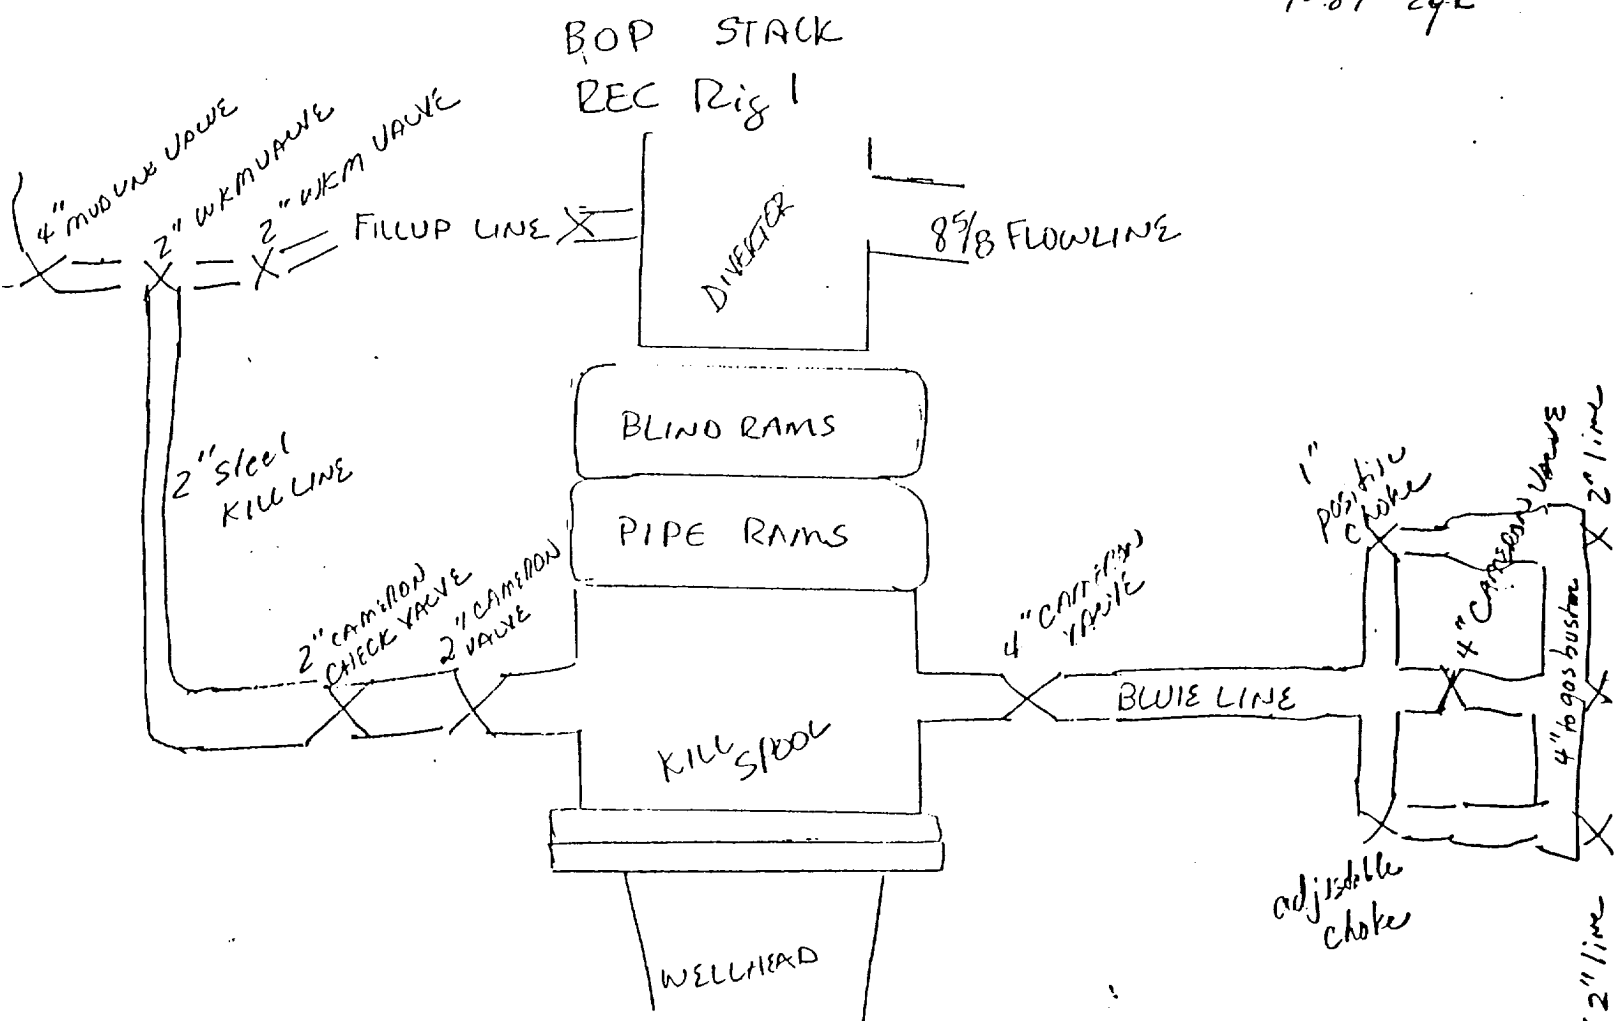 BOP STACK
REC Rig 1
4" MUDLINE VALVE
2" WKM VALVE
2" WKM VALVE
FILLUP LINE
DIVERTER
8 5/8 FLOWLINE
BLIND RAMS
PIPE RAMS
2" Steel
KILL LINE
2" CAMERON
CHECK VALVE
2" CAMERON
VALVE
4" CAMERON
VALVE
BLUIE LINE
1"
positive
choke
4" CAMERON VALVE
2" line
4" to gas buster
KILL
SPOOL
adjustable
choke
2" line
WELLHEAD